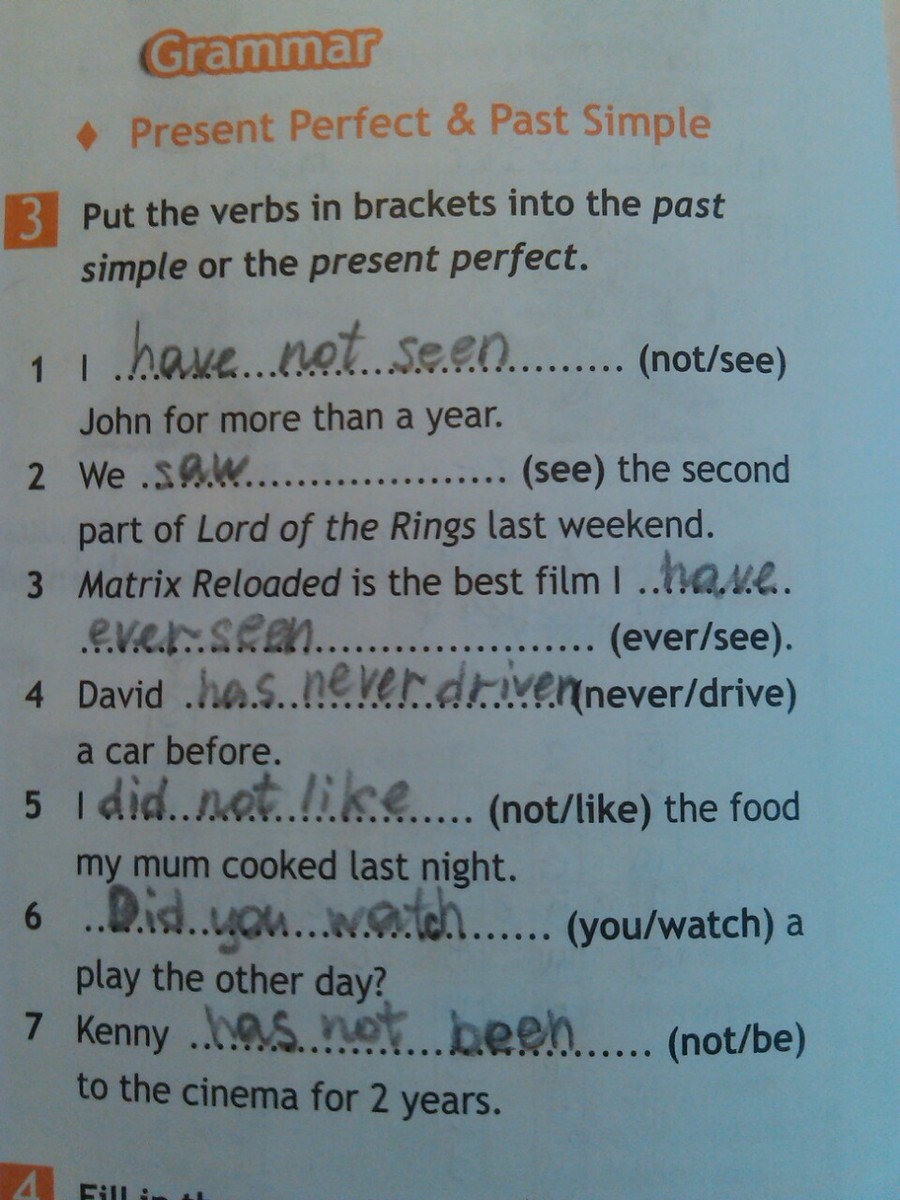 Grammar
♦ Present Perfect & Past Simple
3 Put the verbs in brackets into the past
simple or the present perfect.
1 I have not seen (not/see)
John for more than a year.
2 We saw (see) the second
part of Lord of the Rings last weekend.
3 Matrix Reloaded is the best film I have
ever seen (ever/see).
4 David has never driven (never/drive)
a car before.
5 I did not like (not/like) the food
my mum cooked last night.
6 Did you watch (you/watch) a
play the other day?
7 Kenny has not been (not/be)
to the cinema for 2 years.
4 Fill in